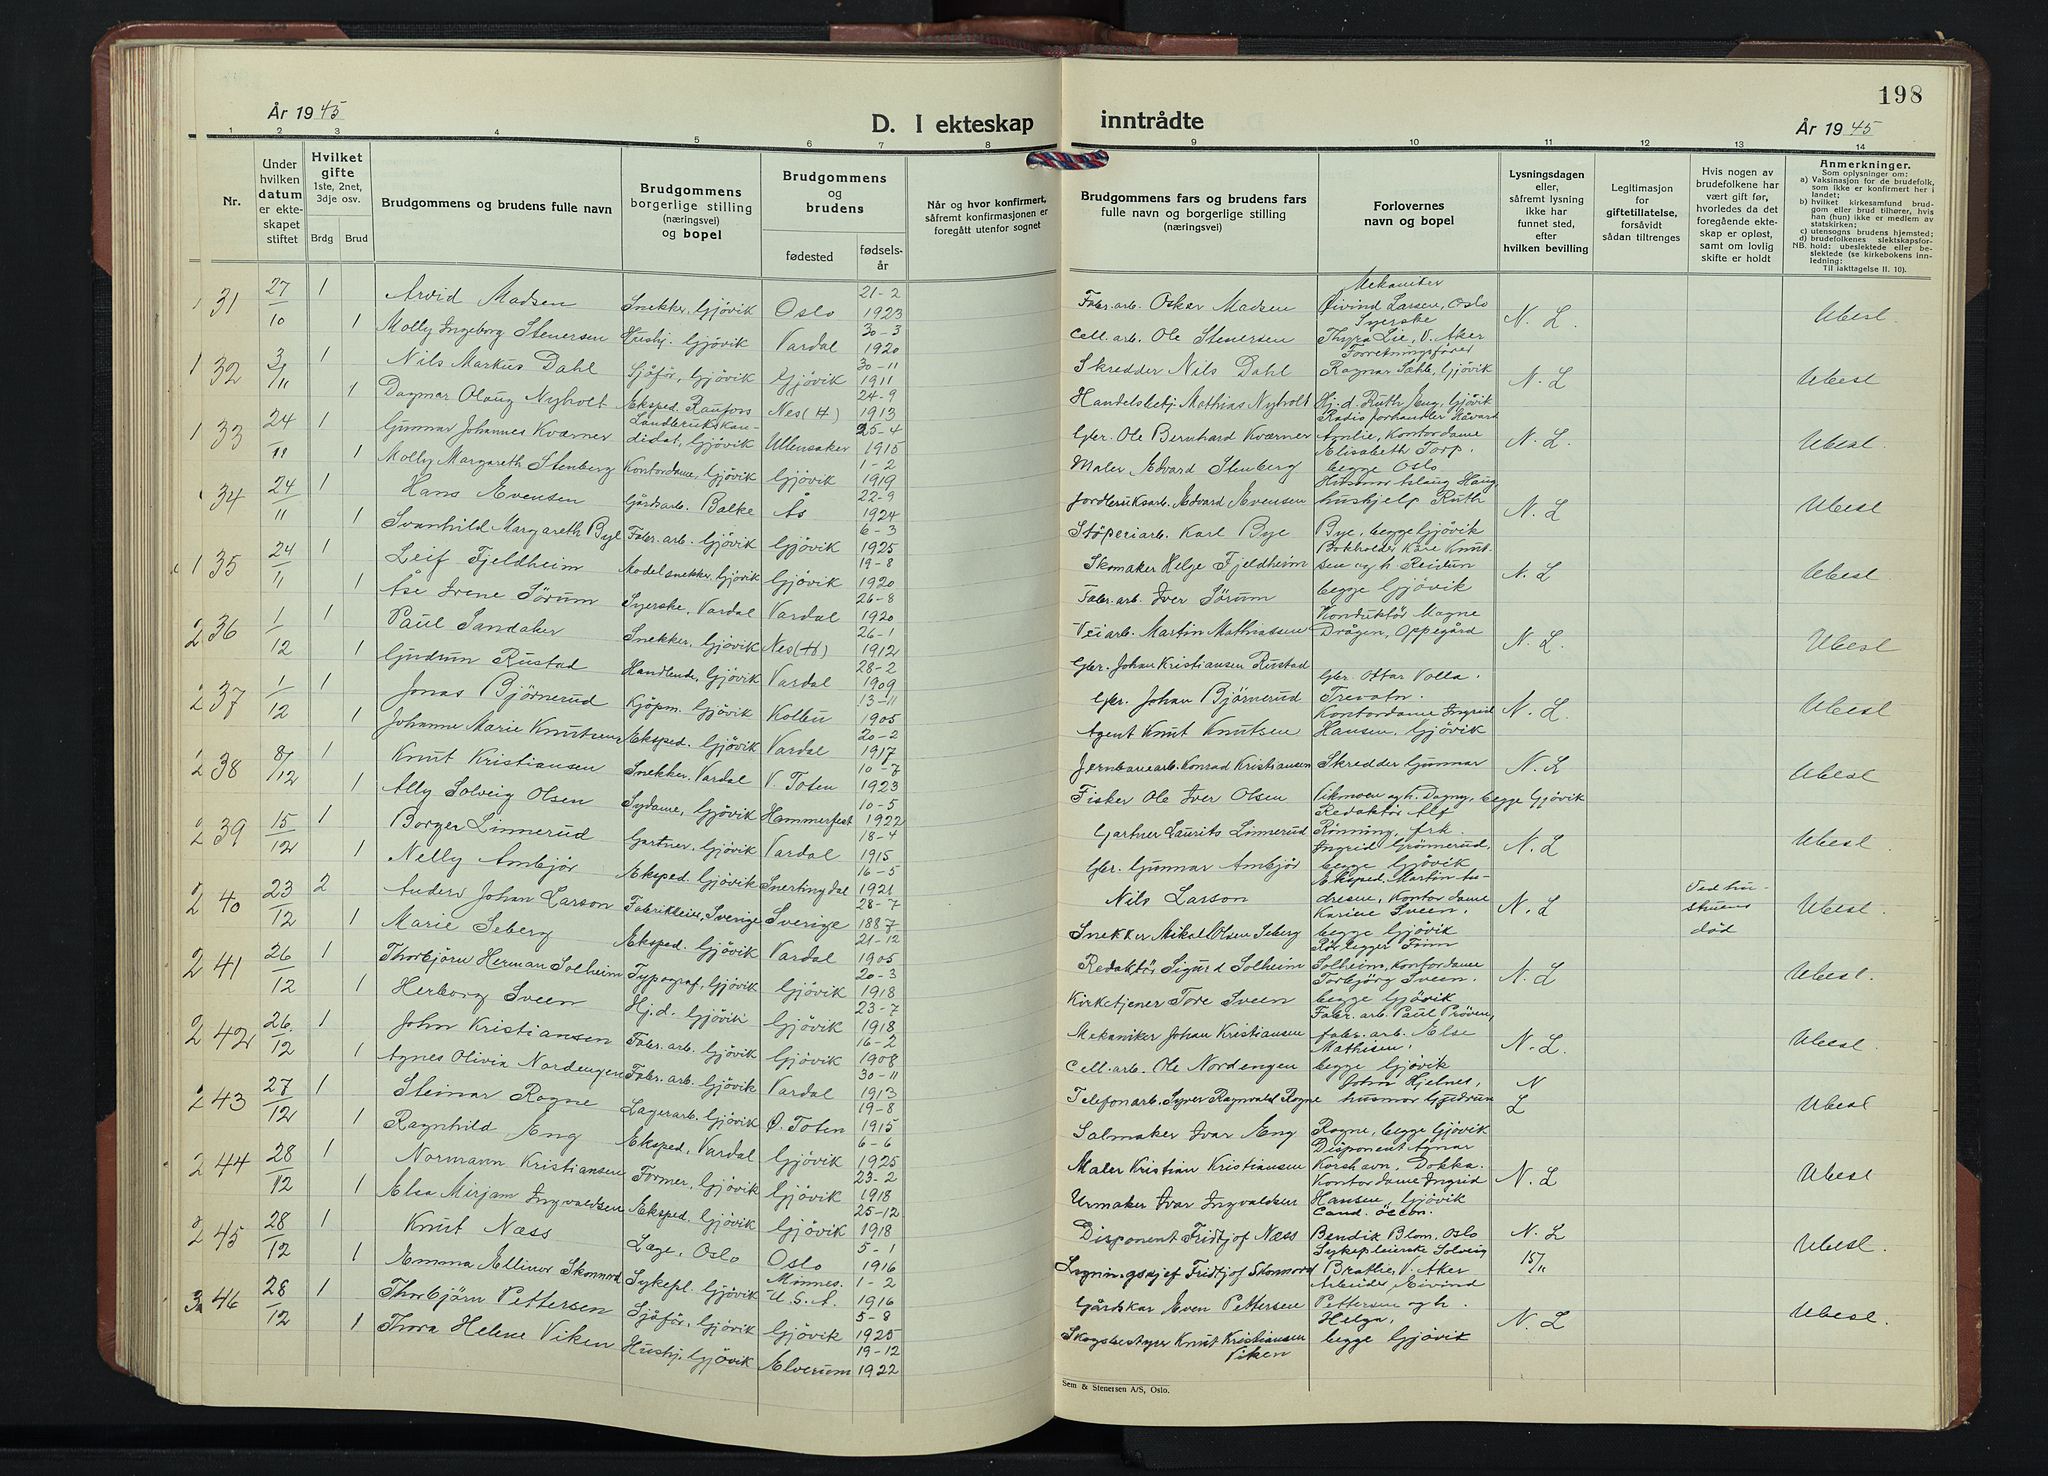 198
År 1945
D. I ekteskap inntrådte
År 1945
1 2 3 4 5 6 7 8 9 10 11 12 13 14
Nr.
Under hvilken datum er ekteskapet stiftet
Hvilket gifte
1ste, 2net, 3dje osv.
Brdg Brud
Brudgommens og brudens fulle navn
Brudgommens borgerlige stilling (næringsvei) og bopel
Brudgommens og brudens
fødested
fødselsår
Når og hvor konfirmert, såfremt konfirmasjonen er foregått utenfor sognet
Brudgommens fars og brudens fars fulle navn og borgerlige stilling (næringsvei)
Forlovernes navn og bopel
Lysningsdagen eller, såfremt lysning ikke har funnet sted, efter hvilken bevilling
Legitimasjon for giftetillatelse, forsåvidt sådan tiltrenges
Hvis nogen av brudefolkene har vært gift før, hvorledes da det foregående ekteskap er opløst, samt om lovlig skifte er holdt
Anmerkninger.
Som oplysninger om:
a) Vaksinasjon for de brudefolk, som ikke er konfirmert her i landet;
b) hvilket kirkesamfund brudgom eller brud tilhører, hvis han (hun) ikke er medlem av statskirken;
c) utensogns brudens hjemsted;
d) brudefolkenes slektskapsforhold: ubeslektede eller beslektede (se kirkebokens innledning:
NB.
Til iakttagelse II. 10).
31 27/10 1 Arvid Madsen Snekker, Gjøvik Oslo 21-2 1923 Fabr. arb. Oskar Madsen Mekaniker Øivind Larsen, Oslo N. L. Ubesl.
1 Molly Ingeborg Stenersen Hushj. Gjøvik Vardal 30-3 1920 Cell. arb. Ole Stenersen Syerske Thyra Lie, V. Aker
32 3/11 1 Nils Markus Dahl Sjåfør, Gjøvik Gjøvik 30-11 1911 Skredder Nils Dahl Forretningsfører Ragnar Dahl, Gjøvik N. L. Ubesl
1 Dagmar Olaug Nyholt Eksped. Raufoss Nes (H) 24-9 1913 Handelsbetj. Mathias Nyholt Hj. d. Ruth Eng, Gjøvik
33 24/11 1 Gunnar Johannes Kværner Landbrukskandidat, Gjøvik Ullensaker 25-4 1915 Gbr. Ole Bernhard Kværner Radioforhandler Håvard Amlie, Kontordame N. L. Ubesl.
1 Molly Margareth Stenberg Kontordame, Gjøvik Gjøvik 1-2 1919 Maler Edvard Stenberg Elisabeth Torp, begge Oslo
34 24/11 1 Hans Evensen Gårdsarb. Balke Ås 22-9 1924 Jordbruksarb. Edvard Evensen Husmor Aslaug Haug, hushjelp Ruth N. L Ubesl
1 Svanhild Margareth Bye Fabr. arb. Gjøvik Gjøvik 6-3 1925 Støperiarb. Karl Bye Bye, begge Gjøvik
35 24/11 1 Leif Fjeldheim Modelsnekker, Gjøvik Gjøvik 19-8 1920 Skomaker Helge Fjeldheim Bokholder Kåre Knutsen og h. Reidun N. L Ubesl
1 Åse Irene Sørum Syerske, Vardal Vardal 26-8 1920 Fabr. arb. Iver Sørum begge Gjøvik
36 1/12 1 Paul Sandaker Snekker, Gjøvik Nes (H) 26-1 1912 Veiarb. Martin Mathiassen Konduktør Magne Drågen, Oppegård N. L. Ubesl
1 Gudrun Rustad Handlende, Gjøvik Vardal 28-2 1909 Gbr. Johan Kristiansen Rustad Gbr. Ottar Volla.
37 1/12 1 Jonas Bjørnerud Kjøpm. Gjøvik Kolbu 13-11 1905 Gbr. Johan Bjørnerud Trevatn. N. L. Ubesl
1 Johanne Marie Knutsen Eksped. Gjøvik Vardal 20-2 1917 Agent Knut Knutsen Kontordame Ingrid Hansen, Gjøvik
38 8/12 1 Knut Kristiansen Snekker, Vardal V. Toten 10-7 1923 Jernbanearb. Konrad Kristiansen Skredder Gunnar N. L Ubesl
1 Ally Solveig Olsen Sydame, Gjøvik Hammerfest 10-5 1922 Fisker Ole Iver Olsen Vikmoen og h. Dagny, begge Gjøvik
39 15/12 1 Borger Linnerud Gartner, Gjøvik Vardal 18-4 1915 Gartner Laurits Linnerud Redaktør Alf Rønning, frk. N. L Ubesl
1 Nelly Ambjør Eksped. Gjøvik Snertingdal 16-5 1921 Gbr. Gunnar Ambjør Ingrid Grømerud, begge Gjøvik
40 23/12 2 Anders Johan Larson Fabrikkeier, Sverige Sverige 28-7 1887 Nils Larson Eksped. Martin Andresen, Kontordame N. L Ved hustruens død Ubesl.
1 Marie Seberg Eksped. Gjøvik Vardal 21-12 1905 Snekker Mikal Olsen Seberg Karine Sveen, begge Gjøvik
41 26/12 1 Thorbjørn Herman Solheim Typograf, Gjøvik Gjøvik 20-3 1918 Redaktør Sigurd Solheim Rørlegger Finn Solheim, Kontordame N. L Ubesl.
1 Herborg Sveen Hj.d. Gjøvik Gjøvik 23-7 1918 Kirketjener Tore Sveen Torbjørg Sveen, begge Gjøvik
42 26/12 1 John Kristiansen Fabr. arb. Gjøvik Gjøvik 16-2 1908 Mekaniker Johan Kristiansen Fabr. arb. Paul Prøven, fabr. arb. Else N. L. Ubesl.
1 Agnes Olivia Nordengen Fabr. arb. Gjøvik Vardal 30-11 1913 Cell. arb. Ole Nordengen Mathisen, begge Gjøvik
43 27/12 1 Steinar Rogne Lagerarb. Gjøvik Ø. Toten 19-8 1915 Telefonarb. Syver Ragnvald Rogne John Hjelnes, husmor Gudrun N L Ubesl
1 Ragnhild Eng Eksped, Vardal Gjøvik 6-6 1925 Salmaker Ivar Eng Rogne, begge Gjøvik
44 28/12 1 Normann Kristiansen Former, Gjøvik Gjøvik 23-2 1918 Maler Kristian Kristiansen Disponent Agnar Korshavn, Dokka. N. L Ubesl
1 Elsa Mirjam Ingvaldsen Eksped. Gjøvik Gjøvik 25-12 1918 Urmaker Ivar Ingvaldsen Kontordame Ingrid Hansen, Gjøvik
45 28/12 1 Knut Næss Læge, Oslo Oslo 5-1 1916 Disponent Fridtjof Næss Cand. öccon. Bendik Blom, Oslo N. L 15/11 Ubesl.
1 Emma Ellinor Skonnord Sykepl. Gjøvik U. S. A. 1-2 1916 Ligningssjef Fridtjof Skonnord Sykepleierske Solveig Brathe, V. Aker
46 28/12 1 Thorbjørn Pettersen Sjåfør, Gjøvik Gjøvik 5-8 1925 Gårdskar Even Pettersen Arbeider Eivind Pettersen og h. N L Ubesl.
1 Thora Helene Viken Hushj, Gjøvik Elverum 19-12 1922 Skogsbestyrer Knut Kristiansen Viken Helga, begge Gjøvik
Sem & Stenersen A/S, Oslo.